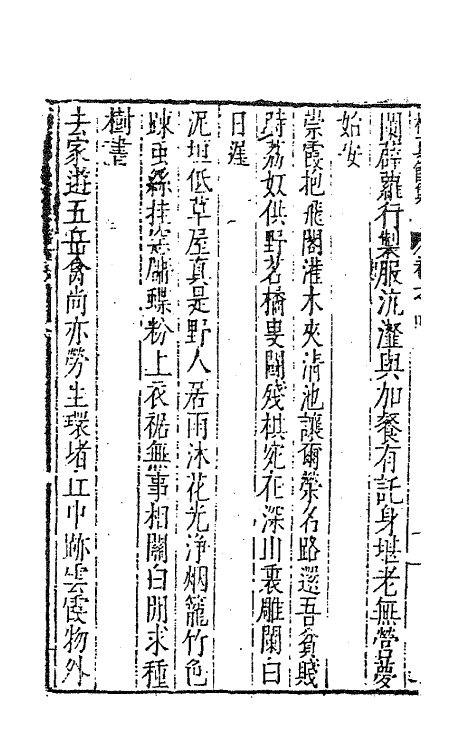 闌薜蘿行製服沆瀣與加餐有託身堪老無營夢
始安
崇霞抱飛閣灌木夾清池讓爾榮名路還吾貧賤
時荔奴供野茗橘叟鬪殘棋宛在深山裏雕闌白
日遲
泥垣低草屋真是野人居雨沐花光淨烟籠竹色
疎虫絲挂窓牖蝶粉上衣裾無事相關白閒求種
樹書
去家遊五岳禽尚亦勞生環堵江中跡雲霞物外